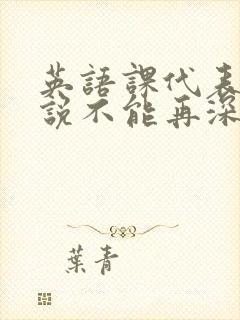 英語課代表
說不能再深
葉青